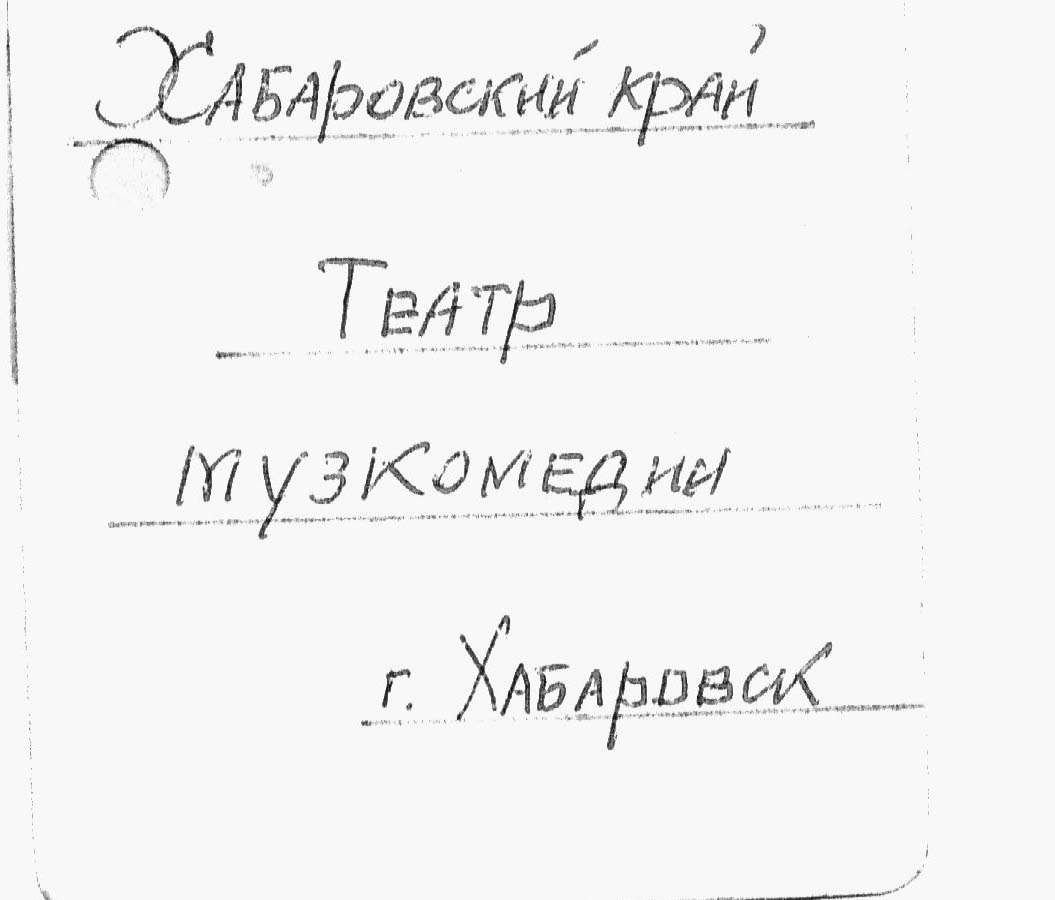 Хабаровский край
Театр
музкомедии
г. Хабаровск